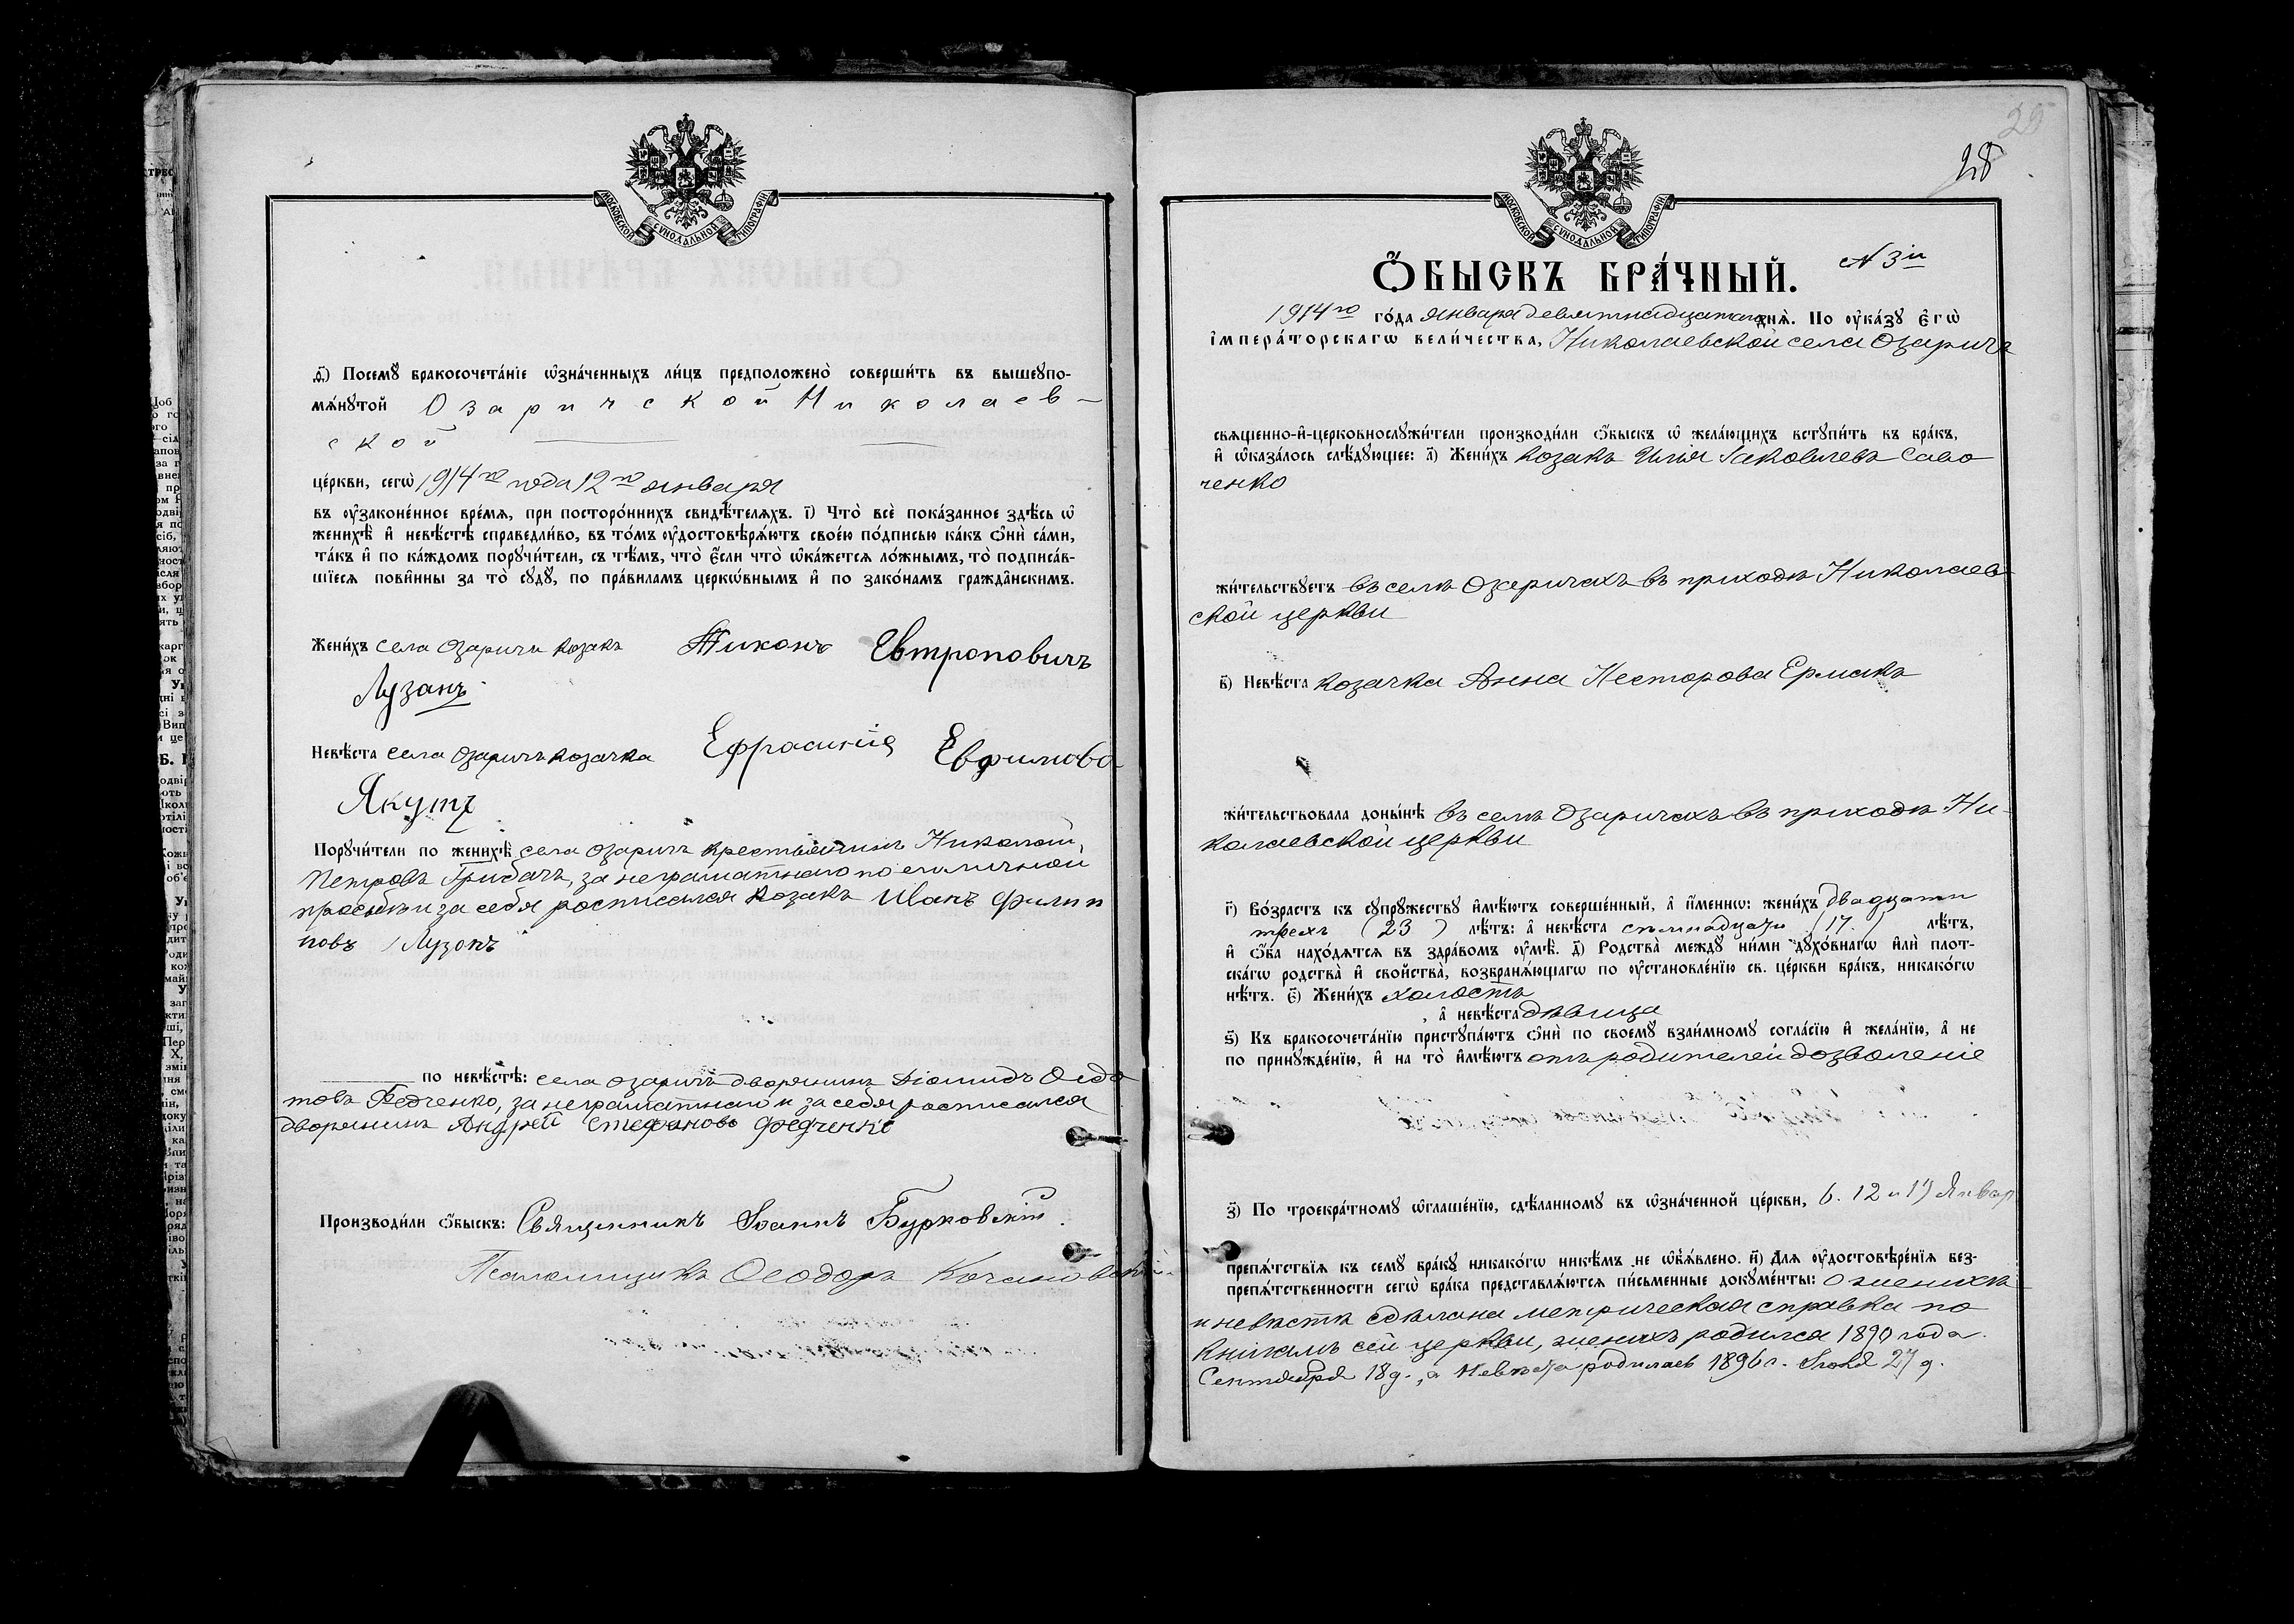 МОСКОВСКОЙ СѴНОДАЛЬНОЙ ТИПОГРАФІИ
ѳ҃) Посемꙋ бракосочета́нїе ѡ҆зна́ченныхъ ли́цъ предположено̀ соверши́ть въ вышеꙋпо-
мѧ́нꙋтой Озарической Николаев-
ской
це́ркви, сегѡ̀ 1914го года 12го января
въ ᲂу҆законе́нное вре́мѧ, при посторо́ннихъ свидѣ́телѧхъ. і҃) Что̀ всѐ пока́занное здѣ́сь ѡ҆
женихѣ̀ и҆ невѣ́стѣ справедли́во, въ то́мъ ᲂу҆достовѣрѧ́ютъ свое́ю по́дписью ка́къ ѻ҆нѝ са́ми,
та́къ и҆ по ка́ждомъ порꙋчи́тели, съ тѣ́мъ, что̀ є҆́сли что̀ ѡ҆ка́жетсѧ ло́жнымъ, то̀ подписа́в-
шїесѧ пови́нны за то̀ сꙋдꙋ̀, по пра́виламъ церкѡ́внымъ и҆ по зако́намъ гражда́нскимъ.
Жени́хъ села Озаричи козакъ Никонъ Евтроповичъ
Лузанъ
Невѣ́ста села Озаричъ козачка Ефросинія Евфимова
Якутъ
Порꙋчи́тели по женихѣ̀ села Озаричъ крестьянинъ Николай
Петровъ Грибачъ, за неграматнаго по его личной
просьбѣ и за себя росписался козакъ Иванъ Филип
повъ Лузонъ
по невѣ́стѣ: села Озаричъ дворянинъ Діомидъ Ѳедо
товъ Федченко, за неграматнаго и за себя росписался
дворянинъ Андрей Стефановъ Федченко
Производи́ли ѻ҆́быскъ: Священникъ Іоаннъ Бурковскій.
Псаломщикъ Ѳеодоръ Кочановскій
29
28
МОСКОВСКОЙ СѴНОДАЛЬНОЙ ТИПОГРАФІИ
Ѻ҆́БЫСКЪ БРА́ЧНЫЙ. № 3й
1914го го́да января девятнадцатаго днѧ̀. По ᲂу҆ка́зꙋ є҆гѡ̀
і҆мпера́торскагѡ вели́чества, Николаевской села Озаричъ
свѧще́нно-и҆-церковнослꙋжи́тели производи́ли ѻ҆́быскъ ѡ҆ жела́ющихъ встꙋпи́ть въ бра́къ,
и҆ ѡ҆каза́лось слѣ́дꙋющее: а҃) Жени́хъ козакъ Илья Іаковлевъ Саво
ченко
жи́тельствꙋетъ въ селѣ Озеричахъ въ приходѣ Николаев
ской церкви
в҃) Невѣ́ста козачка Анна Несторова Ермакъ
жи́тельствовала доны́нѣ въ селѣ Озаричахъ въ приходѣ Ни-
колаевской церкви
г҃) Во́зрастъ къ сꙋпрꙋ́жествꙋ и҆мѣ́ютъ соверше́нный, а҆ и҆́меннѡ: жени́хъ двадцати
трехъ (23) лѣ́тъ: а҆ невѣ́ста семнадцати (17.) лѣ́тъ,
и҆ ѻ҆́ба нахо́дѧтсѧ въ здра́вомъ ᲂу҆мѣ̀. д҃) Родства̀ междꙋ̀ ни́ми дꙋхо́внагѡ и҆лѝ плот-
ска́гѡ родства̀ и҆ сво́йства̀, возбранѧ́ющагѡ по ᲂу҆становле́нїю св. це́ркви бра́къ, никако́гѡ
нѣ́тъ. є҃) Жени́хъ холостъ
а҆ невѣ́ста дѣвица
ѕ҃) Къ бракосочета́нїю пристꙋпа́ютъ ѻ҆нѝ по своемꙋ̀ взаи́мномꙋ согла́сїю и҆ жела́нїю, а҆ не
по принꙋжде́нїю, и҆ на то̀ и҆мѣ́ютъ отъ родителей дозволеніе
з҃) По троекра́тномꙋ ѡ҆глаше́нїю, сдѣ́ланномꙋ въ ѡ҆зна́ченной це́ркви, 6. 12 и 19 Январ
препѧ́тствїѧ къ семꙋ̀ бра́кꙋ никако́гѡ никѣ́мъ не ѡ҆б̾ѧ́влено. и҃) Длѧ ᲂу҆достовѣре́нїѧ без-
препѧ́тственности сегѡ̀ бра́ка представлѧ́ютсѧ пи́сьменные докꙋме́нты: о женихѣ
и невѣстѣ сдѣлана метрическая справка по
книгамъ сей церкви, женихъ родился 1890 года
Сентября 18 д., а невѣста родилась 1896 г. Іюня 27 д.